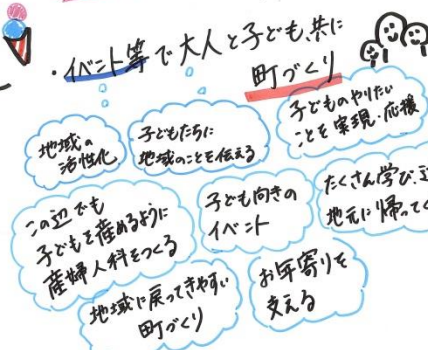 ・イベント等で大人と子ども、共に
町づくり
地域の
活性化
子どもたちに
地域のことを伝える
子どものやりたい
ことを実現・応援
この辺でも
子どもを産めるように
産婦人科をつくる
子ども向きの
イベント
たくさん学び、
地元に帰って
地域に戻ってきやすい
町づくり
お年寄りを
支える